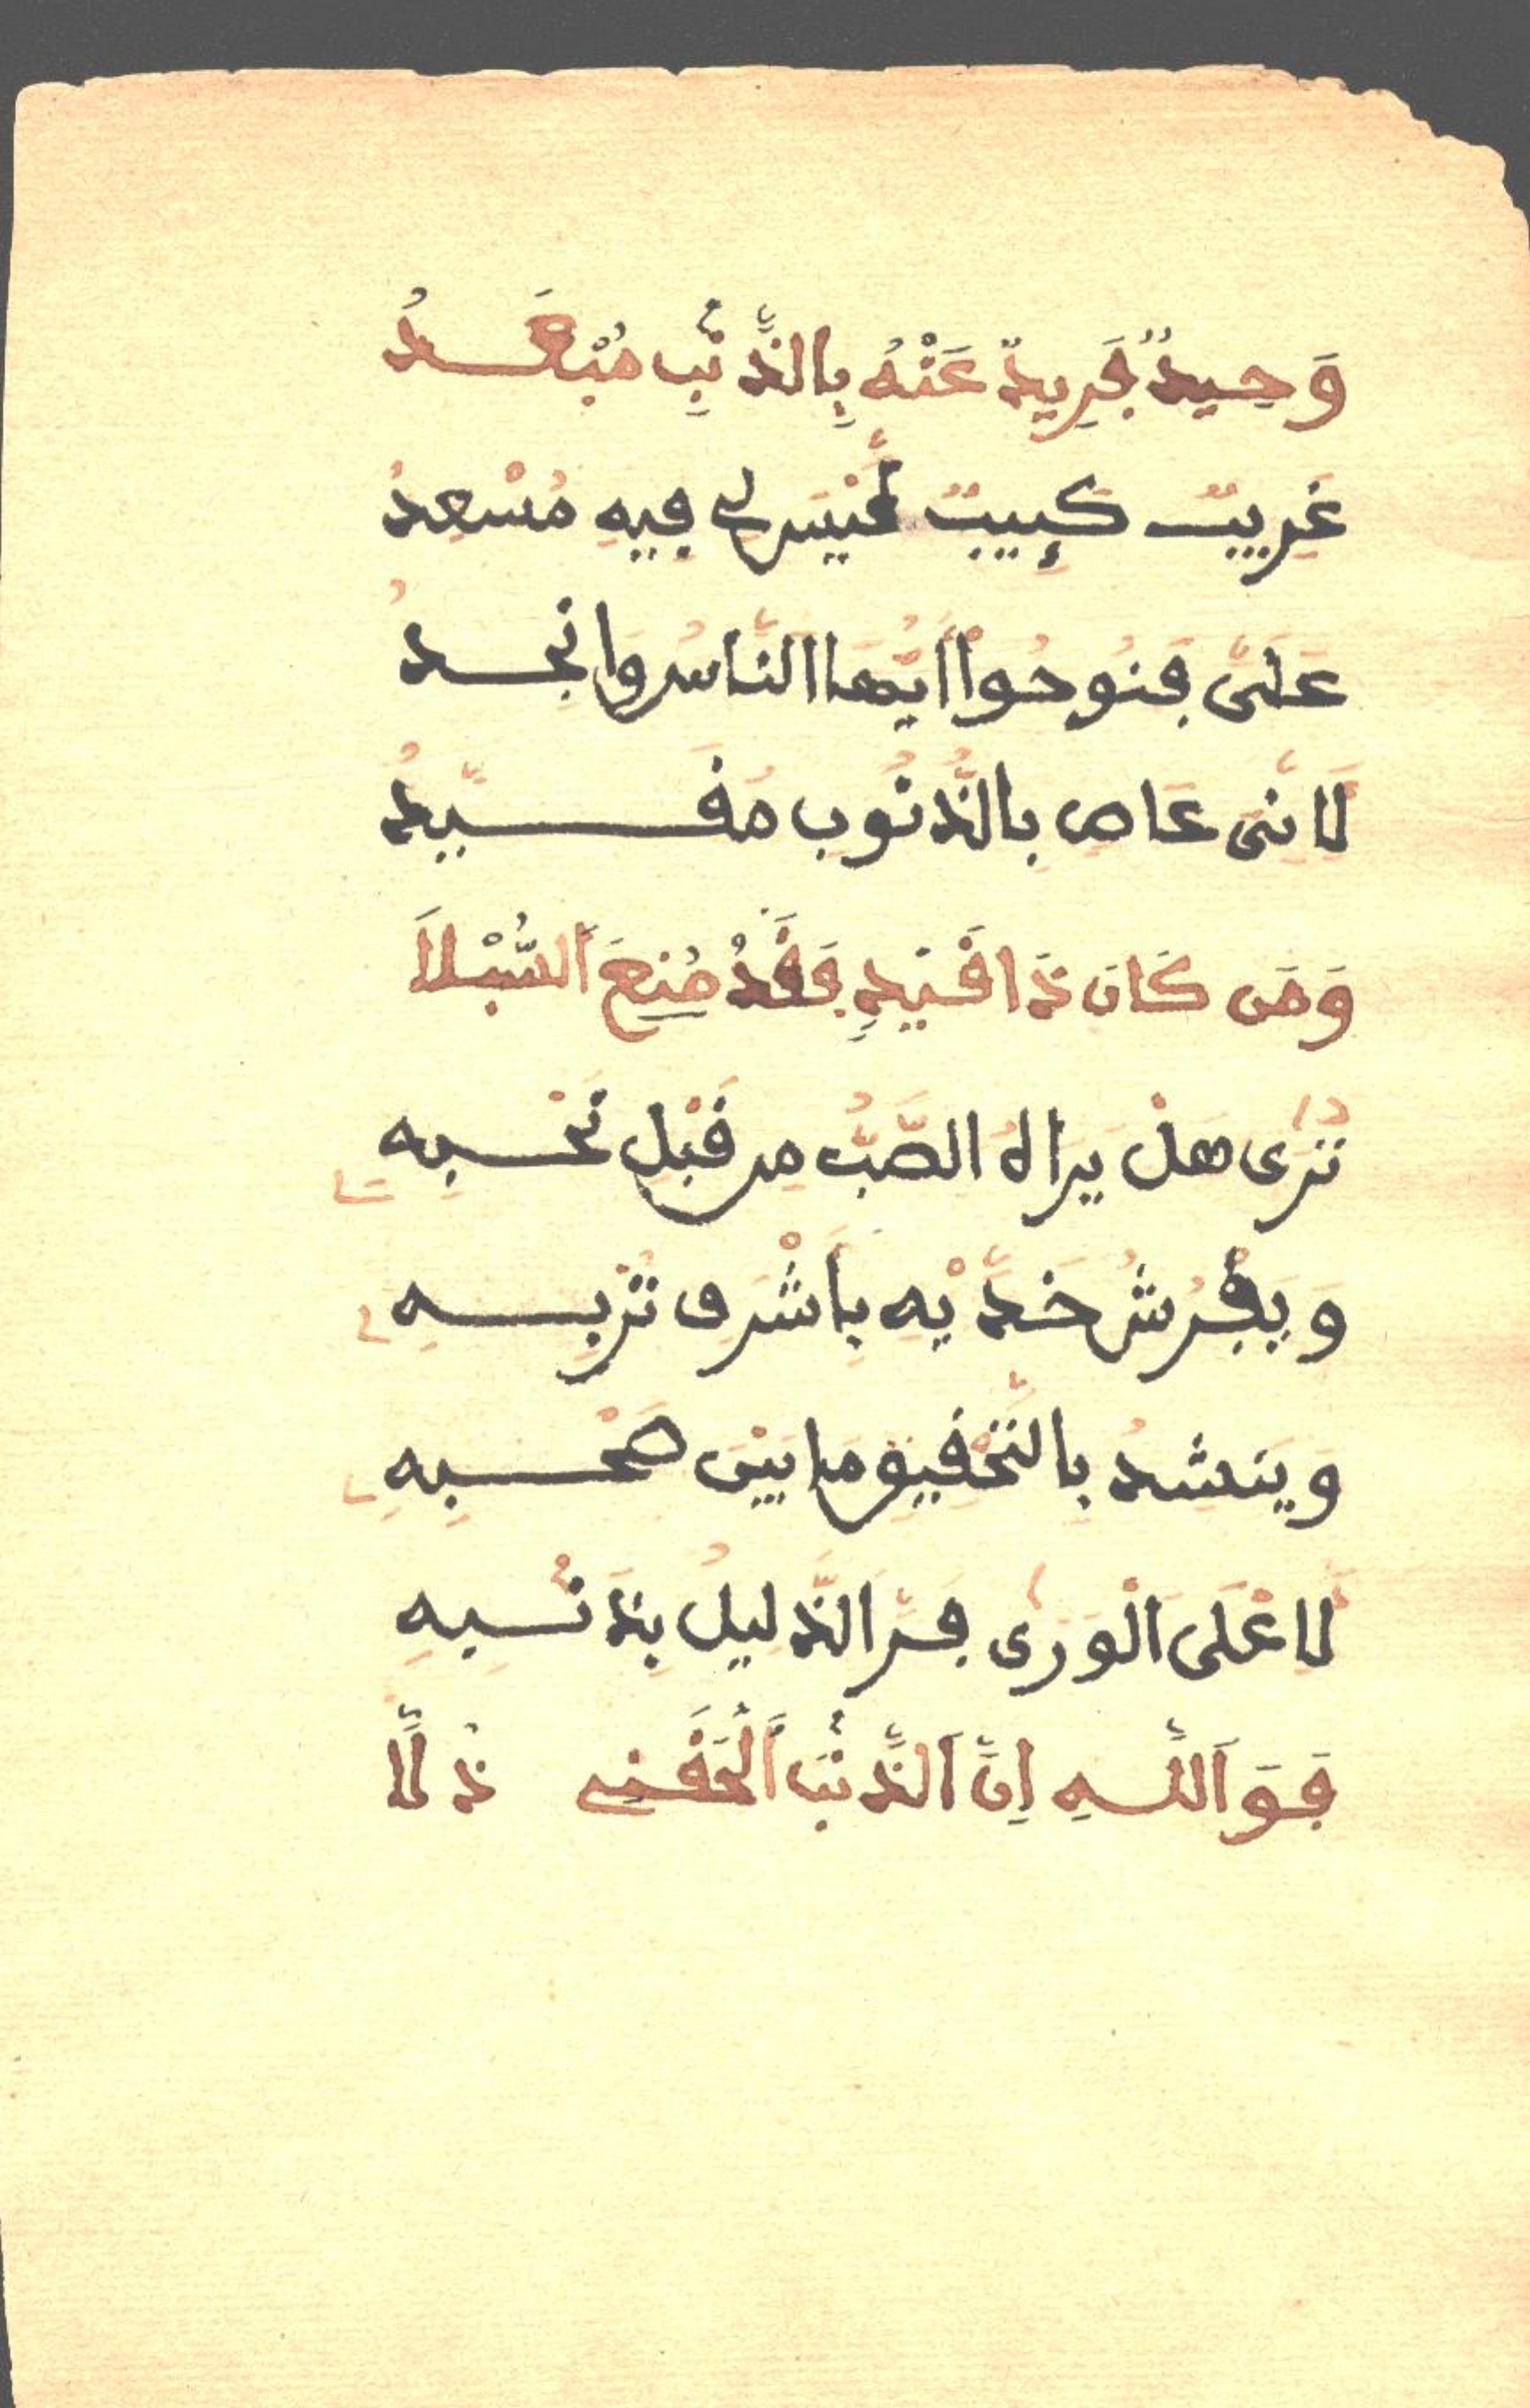 وَحِيدٌ فَرِيدٌ عَنْهُ بِالذَّنْبِ مُبْعَدُ
غَرِيبٌ كَئِيبٌ لَّيْسَ لِي فِيهِ مُسْعِدُ
عَلَىَّ فَنُوحُواْ أَيُّهَا النَّاسُ وَانْجِدُ
لَانَّنِى عَاصٍ بِالذُّنُوبِ مُقَيَّدُ
وَمَن كَانَ ذَا قَيْدٍ فَقَدْ مُنِعَ اَلسُّبْلَا
تُرَى هَلْ يَرَاهُ الصَّبُّ مِن قَبْلِ نَحْبِهِ
وَيَفْرُشُ خَدَّيْهِ بِأَشْرَفِ تُرْبِهِ
وَيَنْشُدُ بِالتَّحْقِيقِ مَا بَيْنَ صَحْبِهِ
لَاعْلَى اَلْوَرَى فَرَّ الذَّلِيلُ بِذَنْبِهِ
فَوَ اَللَّهِ اِنَّ اَلذَّنْبَ اَلْحَقَنِي ذُلَّا